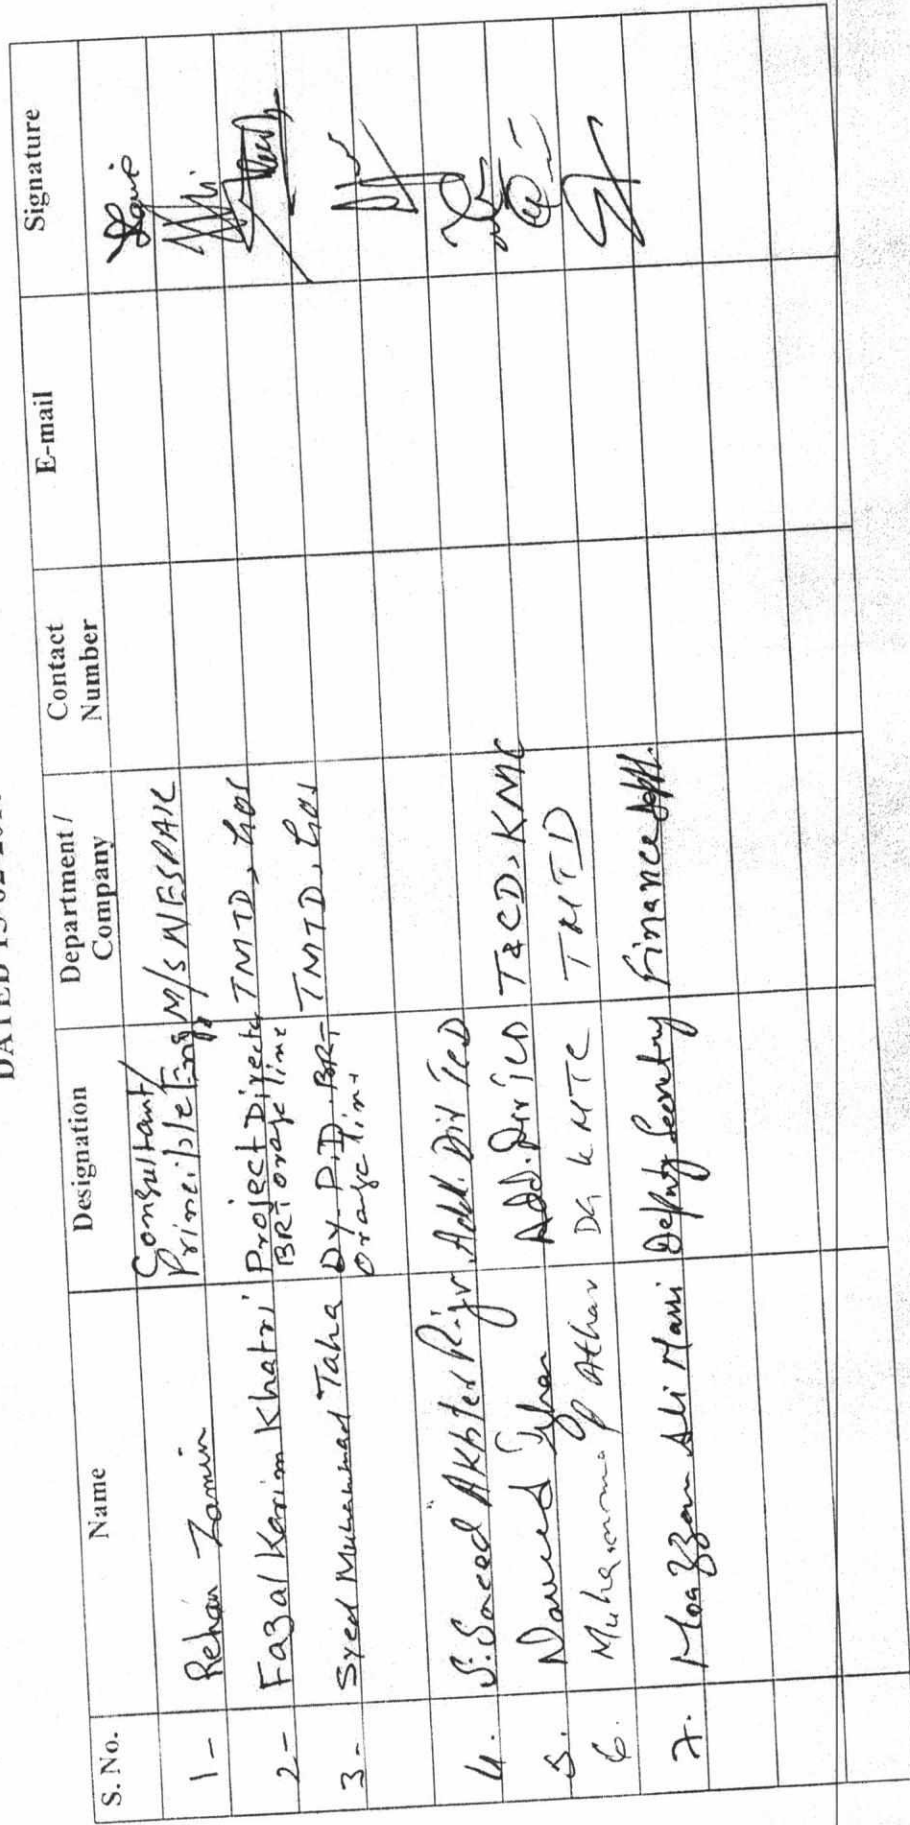 S. No. Name Designation Department / Company Contact Number E-mail Signature
1 - Rehan Zamin Consultant/ Principle Engg M/S NESPAK
2 - Fazal Karim Khatri Project Director BRT orange line TMTD, GoS
3 - Syed Muhammad Taha Dy. P.D. BRT Orange Line TMTD, GoS
4. S. Saeed Akhter Add. Dir TCD
5. Naveed Add. Dir TCD T&CD, KMC
6. Muhammad Athar DG KMTC TMTD
7. Moazzam Ali Marri Deputy Secretary Finance Deptt.